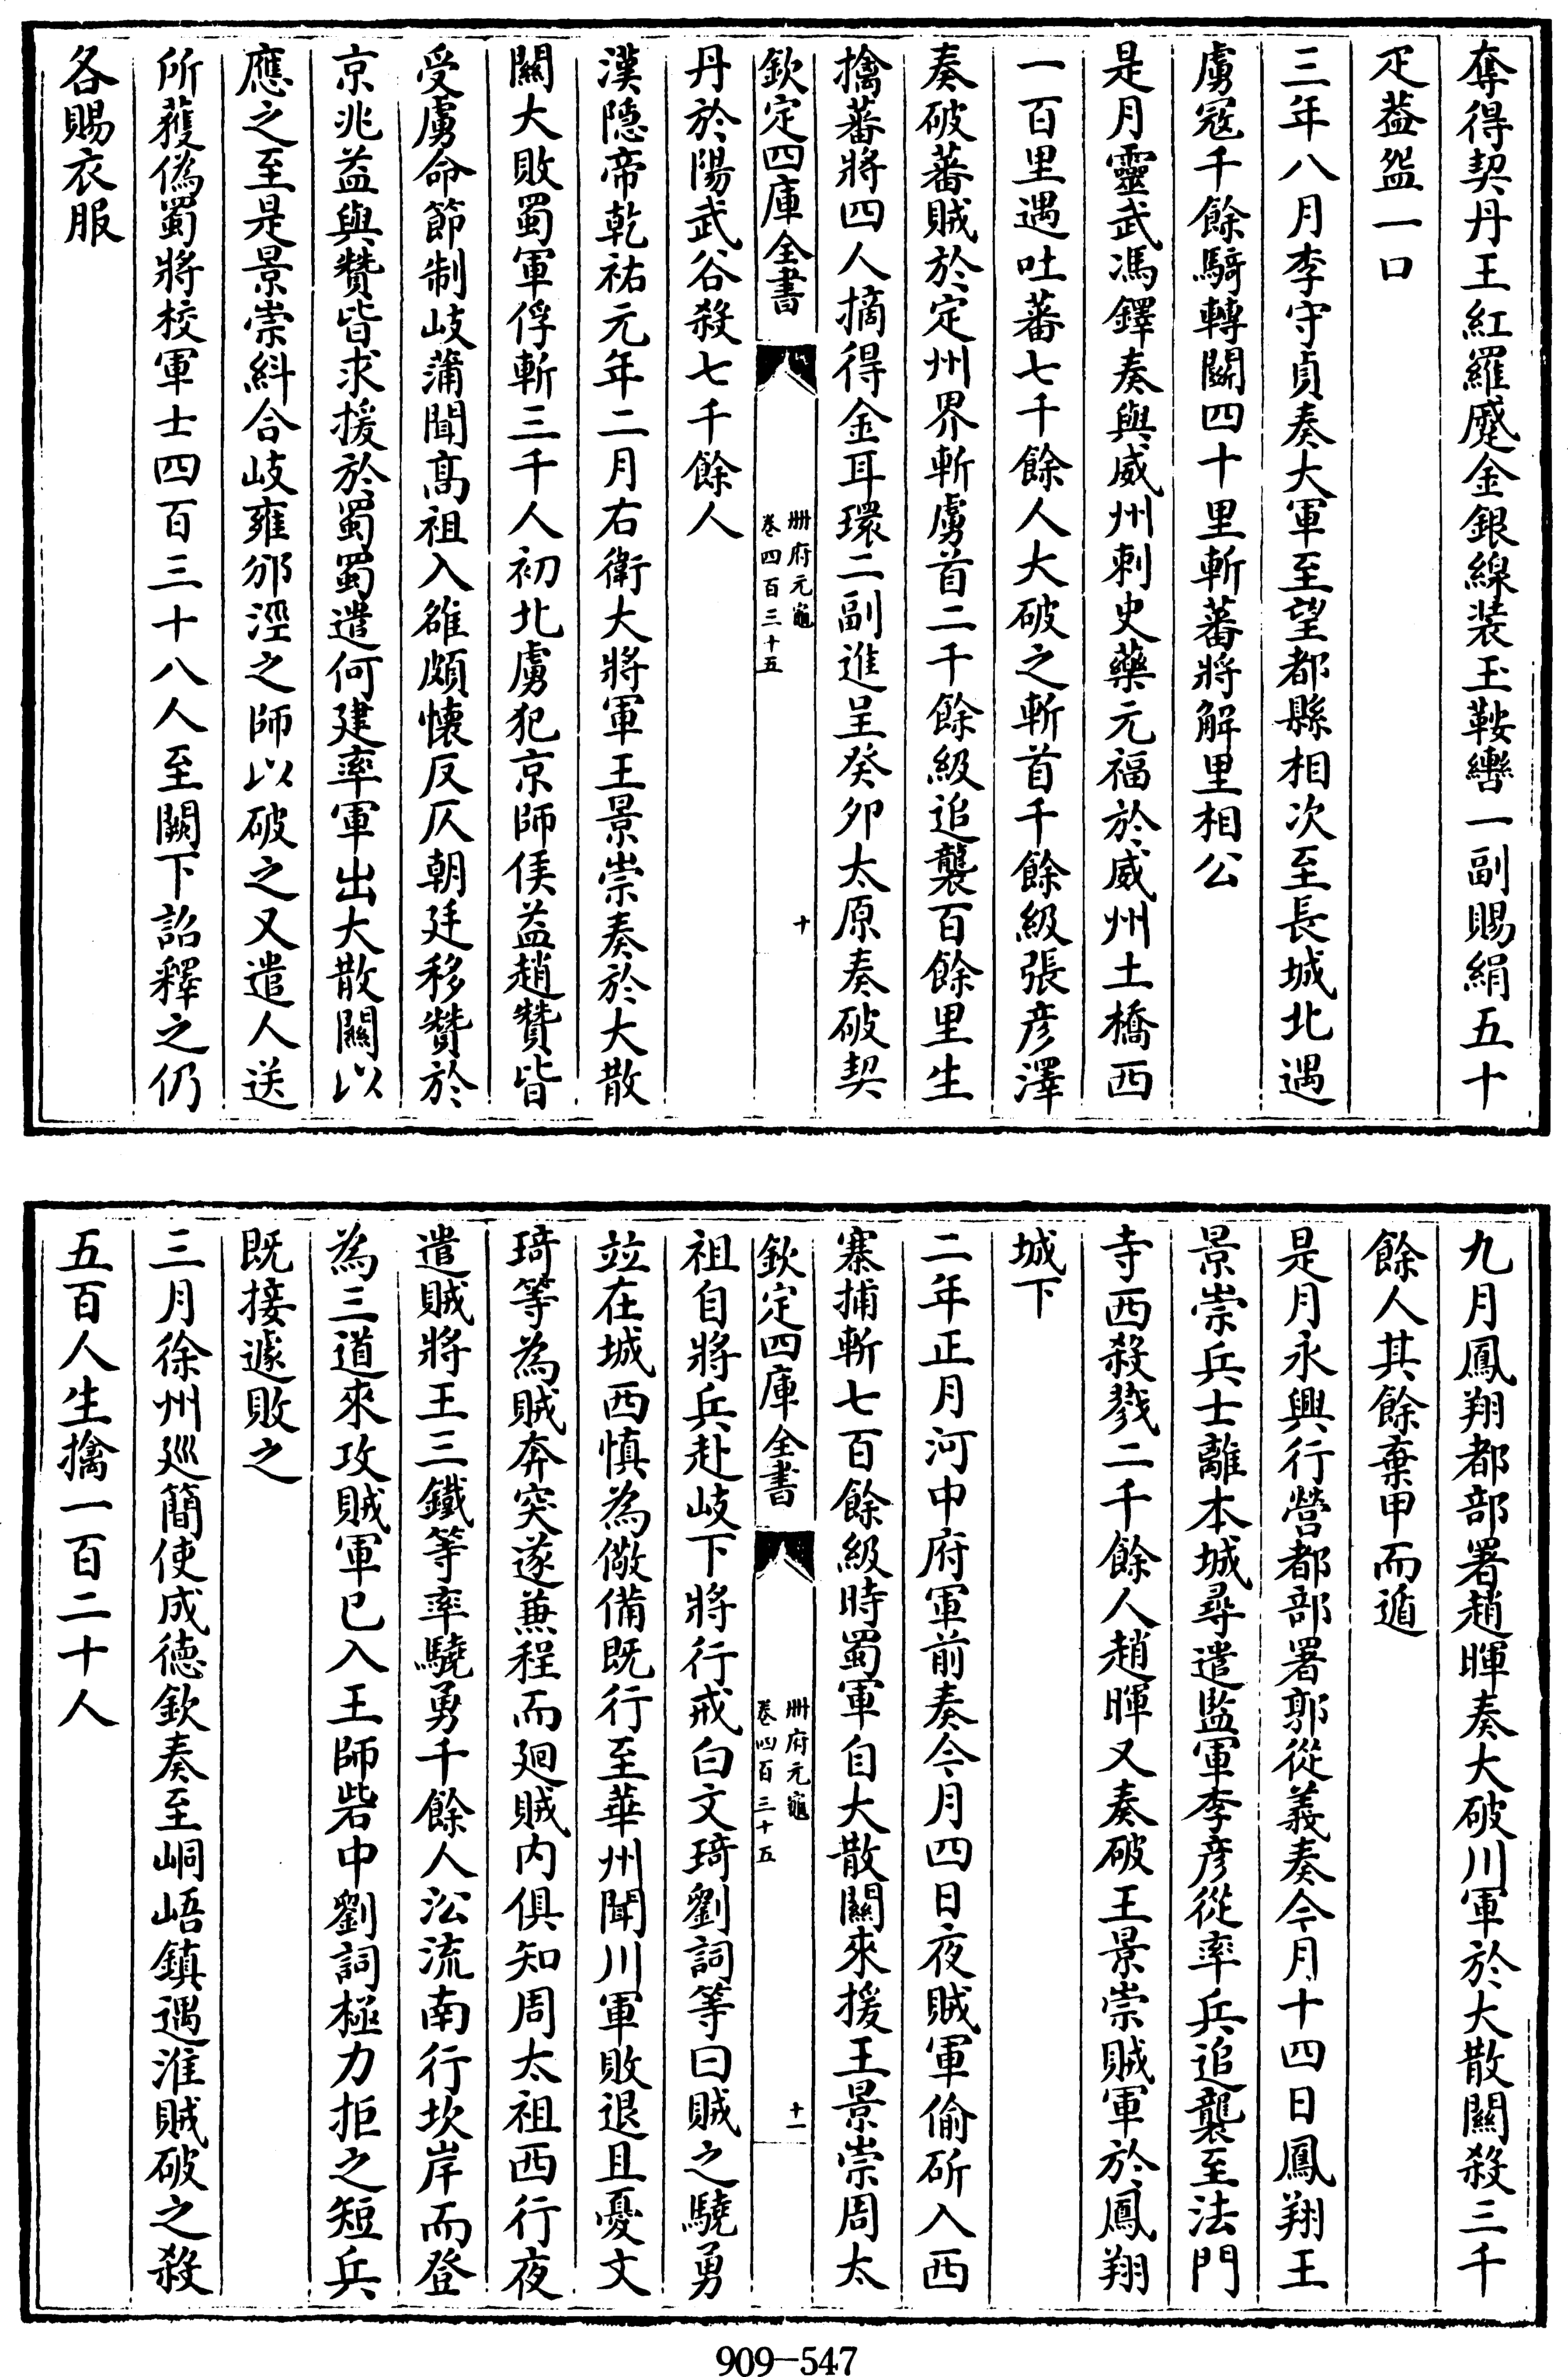 奪得契丹王紅羅蹙金銀線装玉鞍轡一副賜絹五十
疋葢盌一口
三年八月李守貞奏大軍至望都縣相次至長城北遇
虜冦千餘騎轉鬭四十里斬蕃將解里相公
是月靈武馮鐸奏與威州刺史藥元福於威州土橋西
一百里遇吐蕃七千餘人大破之斬首千餘級張彦澤
奏破蕃賊於定州界斬虜首二千餘級追襲百餘里生
擒蕃將四人摘得金耳環二副進呈癸夘太原奏破契
欽定四庫全書
冊府元龜
卷四百三十五
十
丹於陽武谷殺七千餘人
漢隠帝乾祐元年二月右衛大將軍王景崇奏於大散
關大敗蜀軍俘斬三千人初北虜犯京師侯益趙贊皆
受虜命節制岐蒲聞髙祖入雒頗懐反仄朝廷移贊於
京兆益與贊皆求援於蜀蜀遣何建率軍出大散關以
應之至是景崇糾合岐雍邠涇之師以破之又遣人送
所獲偽蜀將校軍士四百三十八人至闕下詔釋之仍
各賜衣服
九月鳳翔都部署趙暉奏大破川軍於大散關殺三千
餘人其餘棄甲而遁
是月永興行營都部署郭從義奏今月十四日鳳翔王
景崇兵士離本城尋遣監軍李彦從率兵追襲至法門
寺西殺戮二千餘人趙暉又奏破王景崇賊軍於鳳翔
城下
二年正月河中府軍前奏今月四日夜賊軍偷斫入西
寨捕斬七百餘級時蜀軍自大散關來援王景崇周太
欽定四庫全書
冊府元龜
卷四百三十五
十一
祖自將兵赴岐下將行戒白文琦劉詞等曰賊之驍勇
竝在城西慎為儆備既行至華州聞川軍敗退且憂文
琦等為賊奔突遂兼程而廻賊内俱知周太祖西行夜
遣賊將王三鐵等率驍勇千餘人㳂流南行坎岸而登
為三道來攻賊軍已入王師砦中劉詞極力拒之短兵
既接遽敗之
三月徐州廵簡使成徳欽奏至峒峿鎮遇淮賊破之殺
五百人生擒一百二十人
909—547